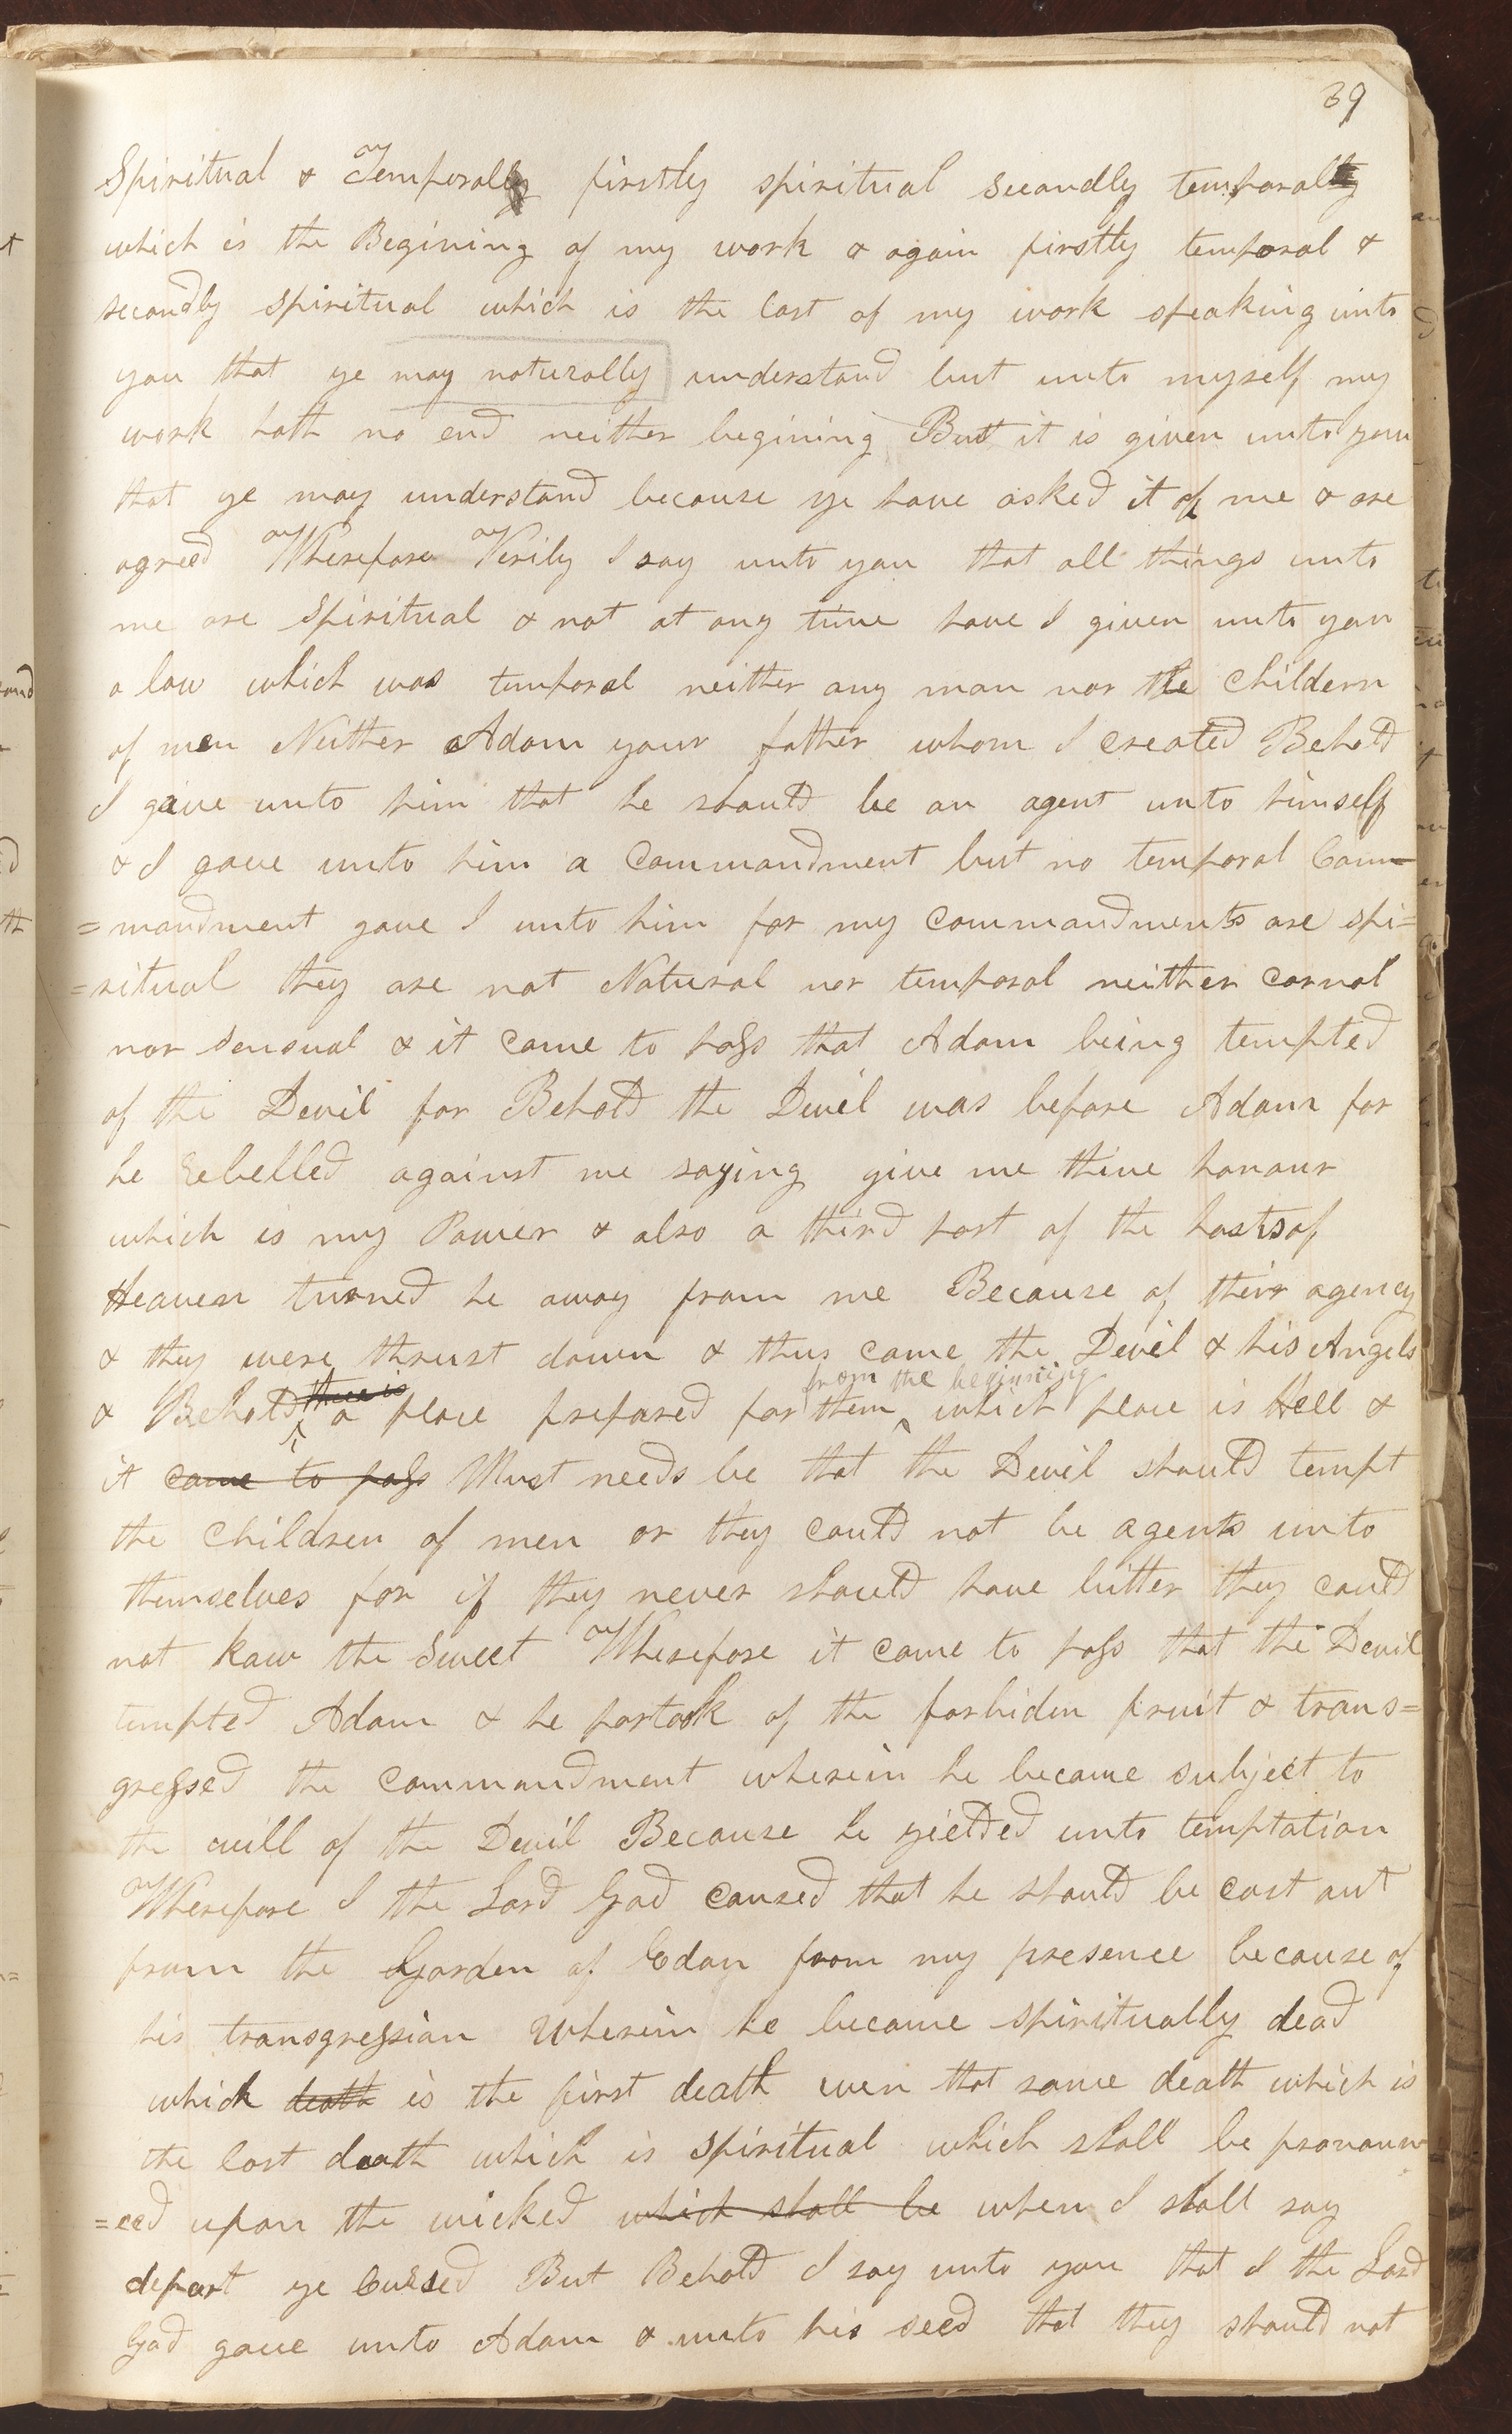 39
Spiritual & Temporally firstly spiritual secondly temporally
which is the Begining of my work & again firstly temporal &
secondly spiritual which is the last of my work speaking unto
you that ye may naturally understand but unto myself my
work hath no end neither begining But it is given unto you
that ye may understand because ye have asked it of me & are
agreed Wherefore Verily I say unto you that all things unto
me are Spiritual & not at any time have I given unto you
a law which was temporal neither any man nor the Childern
of men Neither Adam your father whom I created Behold
I gave unto him that he should be an agent unto himself
& I gave unto him a Commandment but no temporal Com
=mandment gave I unto him for my commandments are spi=
=ritual they are not Natural nor temporal neither carnal
nor sensual & it came to pass that Adam being tempted
of the Devil for Behold the Devil was before Adam for
he rebelled against me saying give me thine honour
which is my Power & also a third part of the hosts of
Heaven turned he away from me Because of their agency
& they were thrust down & thus came the Devil & his Angels
there is from the begining
& Behold a place prepared for them which place is Hell &
it came to pass Must needs be that the Devil should tempt
the children of men or they could not be agents unto
themselves for if they never should have bitter they could
not kaw the Sweet Wherefore it came to pass that the Devil
tempted Adam & he partook of the forbiden fruit & trans=
gressed the commandment wherein he became subject to
the will of the Devil Because he yielded unto temptation
Wherefore I the Lord God caused that he should be cast out
from the Garden of Edan from my presence because of
his transgression Wherein he became spiritually dead
which death is the first death even that same death which is
the last death which is spiritual which shall be pronoun
=ced upon the wicked which shall be when I shall say
depart ye cursed But Behold I say unto you that I the Lord
God gave unto Adam & unto his seed that they should not